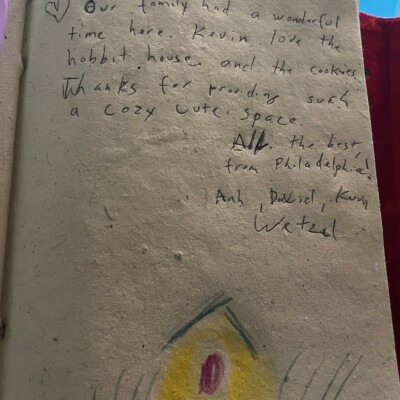 Our family had a wonderful
time here. Kevin love the
hobbit house and the cookies.
Thanks for providing such
a cozy cute space.
All the best,
from Philadelphia!
Anh, David, Kevin
Wetzel